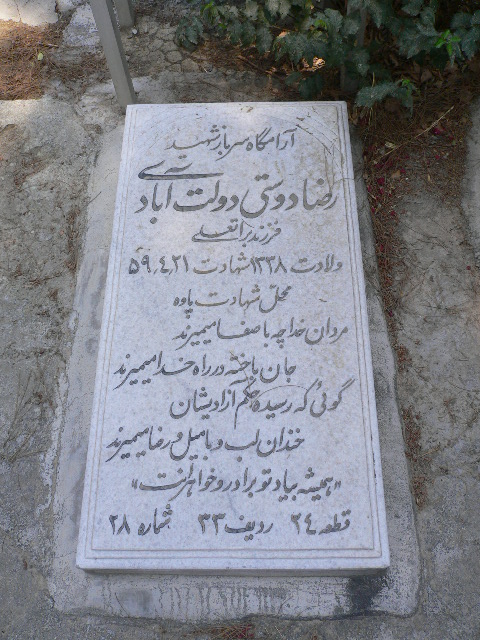 آرامگاه سرباز شهید
رضا دوستی دولت آبادی
فرزند براتعلی
ولادت ۱۳۳۸ شهادت ۵۹٫۴٫۲۱
محل شهادت پاوه
مردان خدا چه با صفا میمیرند
جان باخته در راه خدا میمیرند
گوئی که رسیده حکم آزادیشان
خندان لب و با میل و رضا میمیرند
«همیشه بیاد تو برادر و خواهرانت»
قطعه ۲۴ ردیف ۳۳ شماره ۲۸